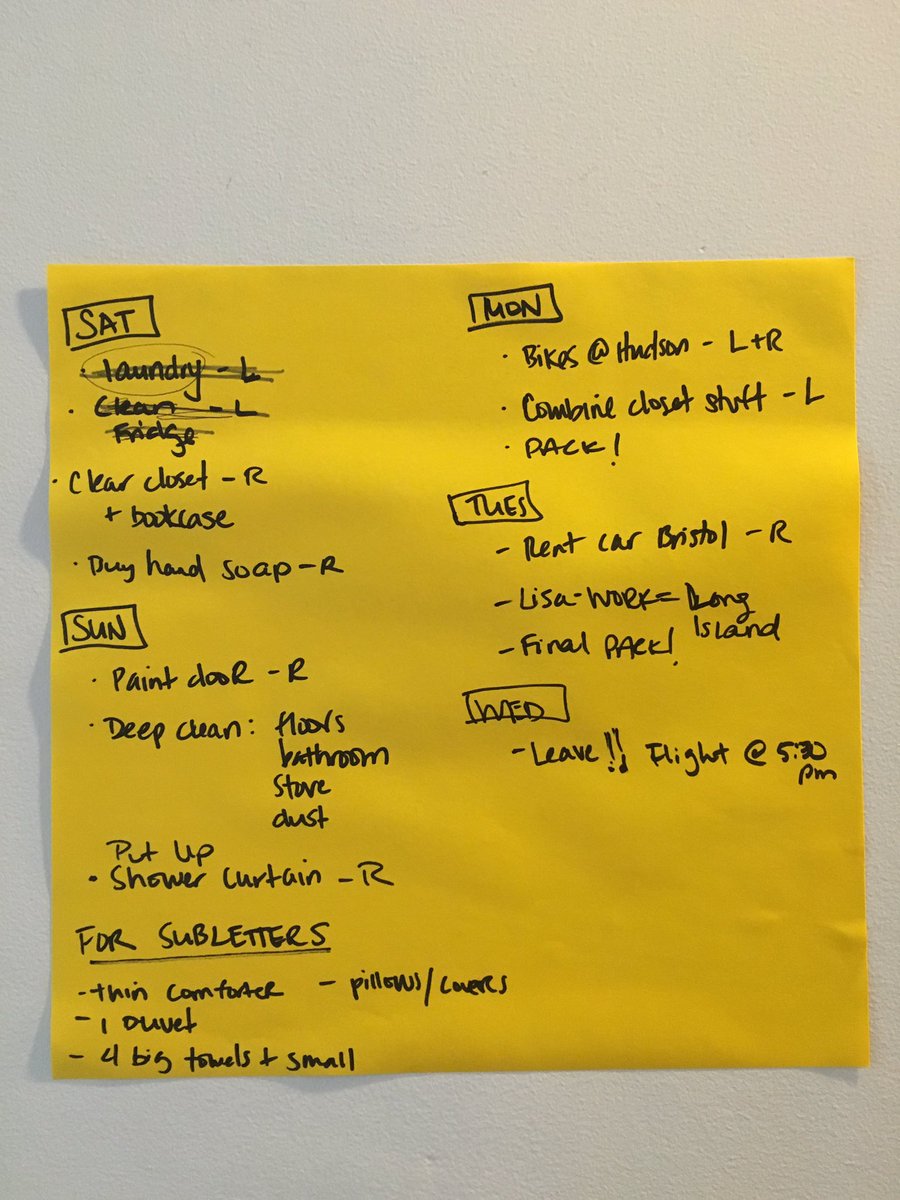 SAT
· laundry - L
· Clean - L
Fridge
· Clear closet - R
+ bookcase
· Buy hand soap - R
SUN
· Paint dooR - R
· Deep clean: floors
bathroom
stove
dust
Put Up
· Shower Curtain - R
FOR SUBLETTERS
- thin comforter - pillows/covers
- 1 duvet
- 4 big towels + small
MON
· Bikes @ Hudson - L+R
· Combine closet stuff - L
· PACK!
TUES
- Rent car Bristol - R
- Lisa-WORK = Long
Island
- Final PACK!
WED
- Leave!! Flight @ 5:30
pm